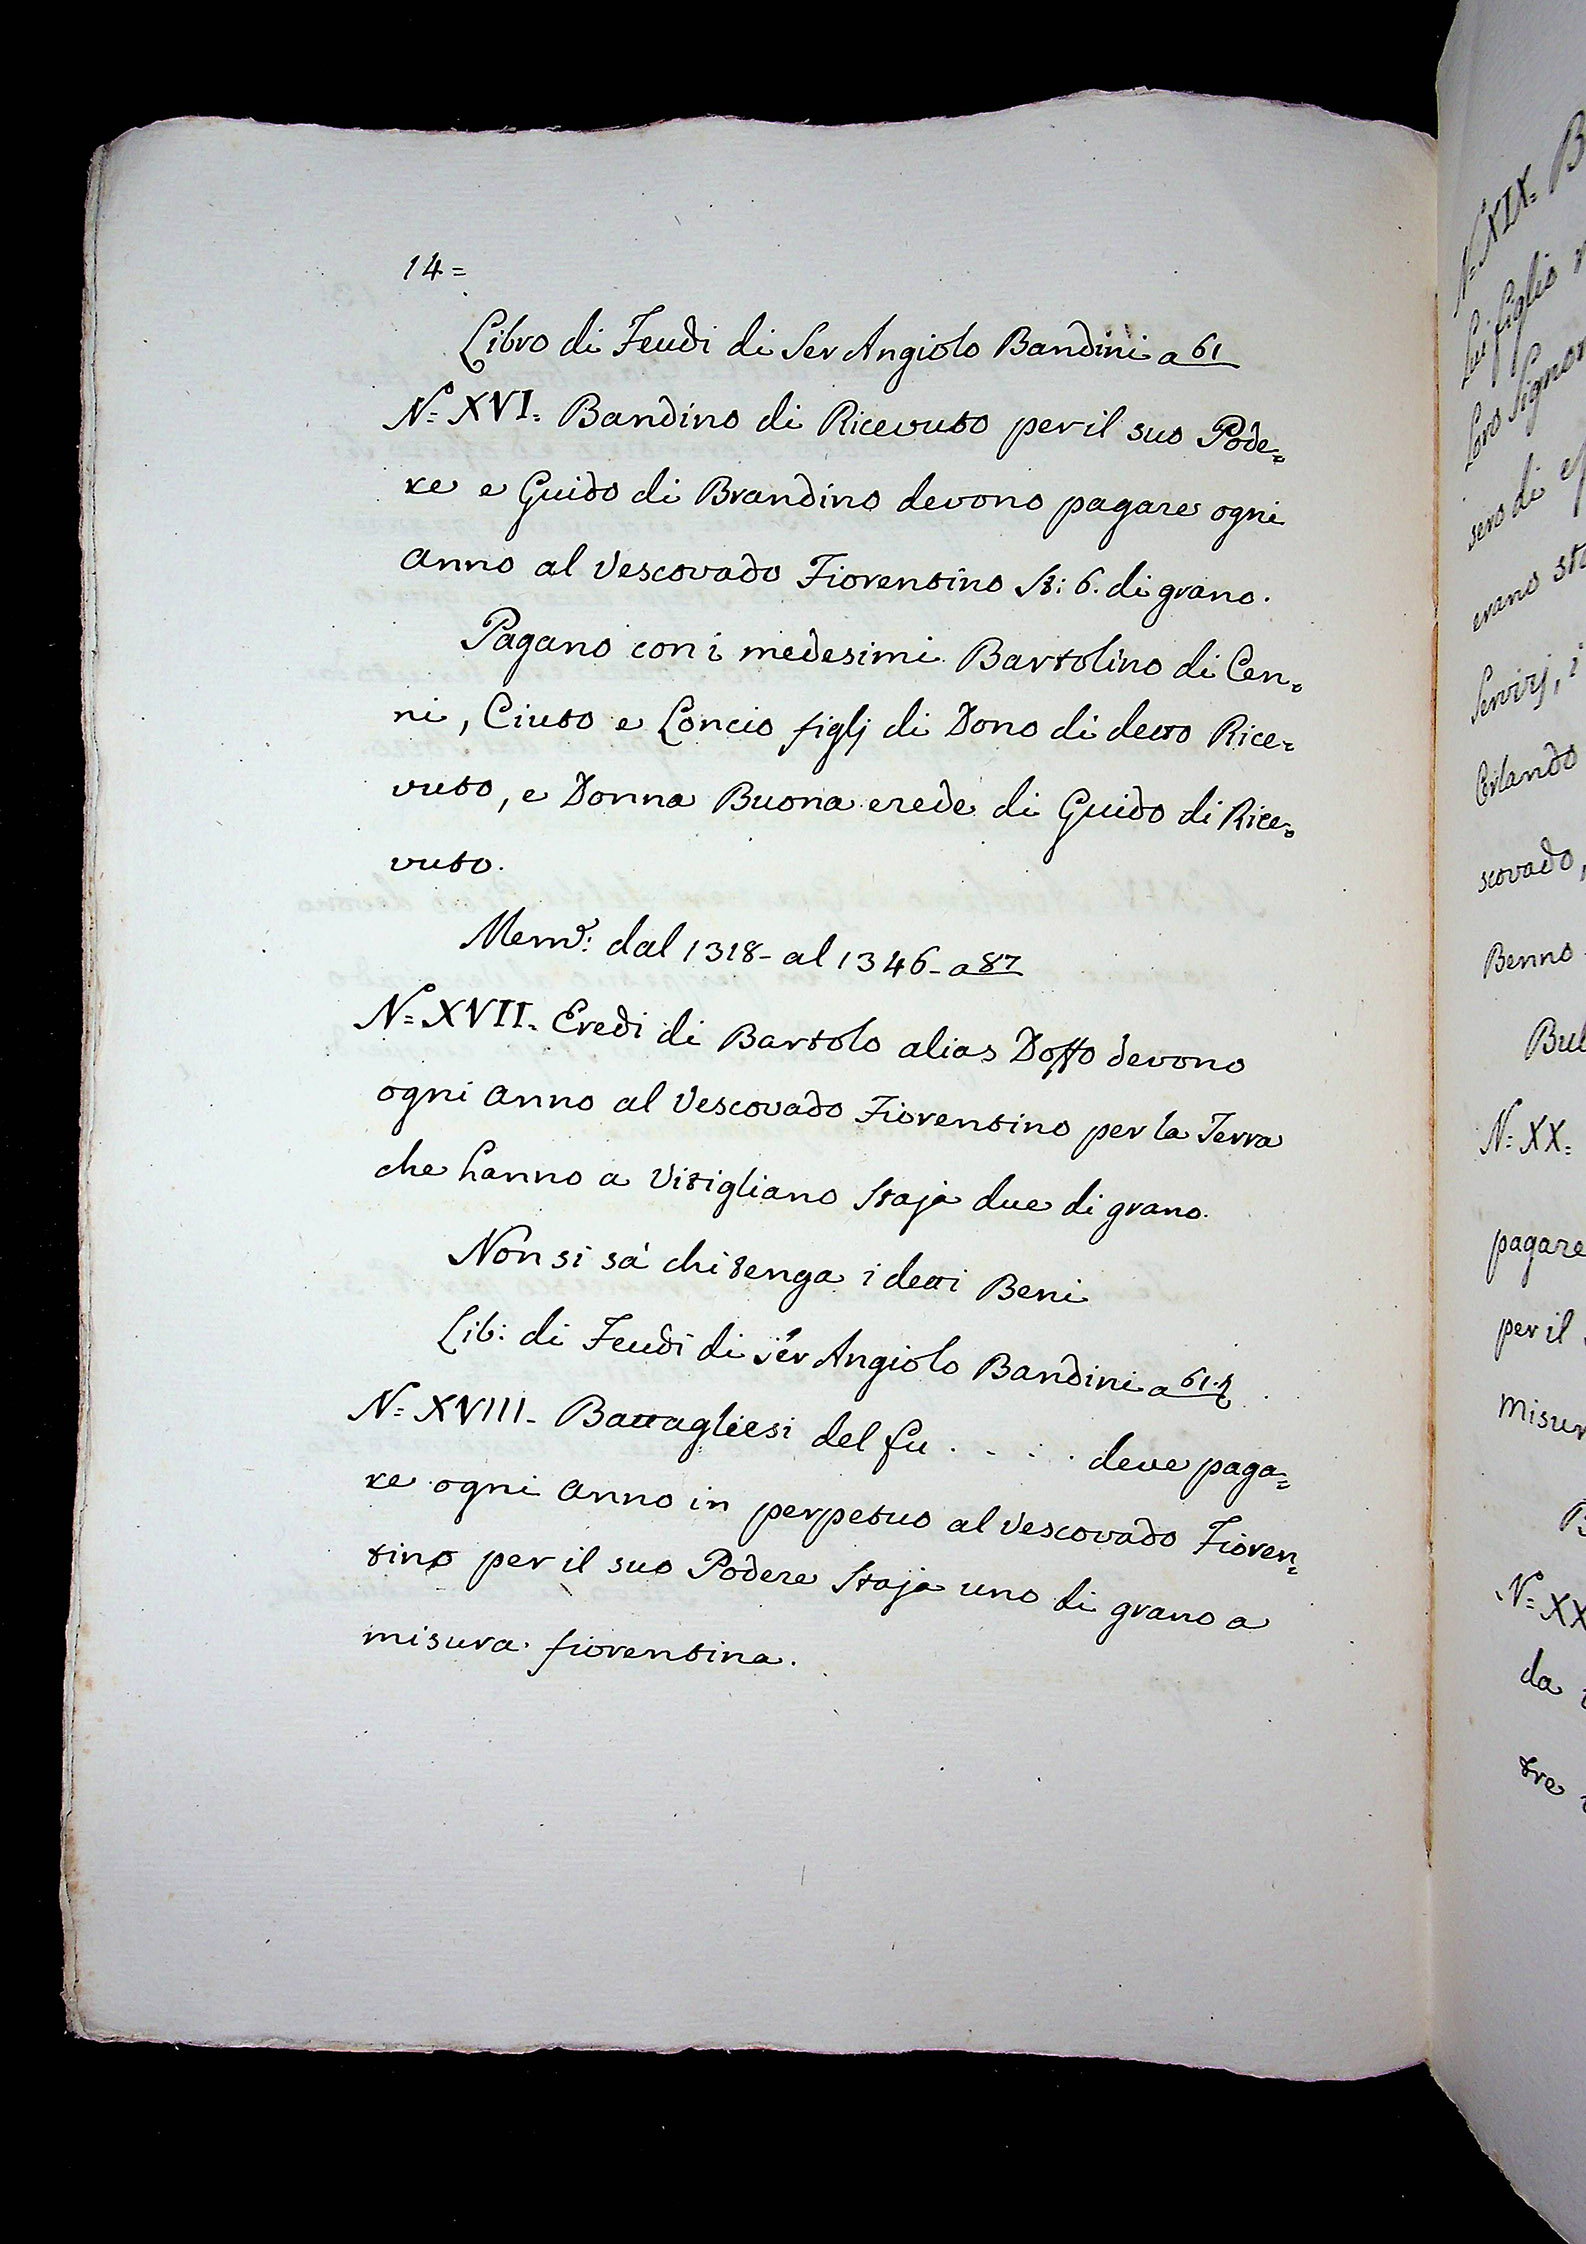 14=
Libro di Feudi di Ser Angiolo Bandini a 61
N.° XVI. Bandino di Ricevuto per il suo Pode=
re e Guido di Brandino devono pagare ogni
anno al Vescovado Fiorentino St: 6. di grano.
Pagano con i medesimi Bartolino di Cen=
ni, Ciuto e Loncio figlj di Dono di detto Rice=
vuto, e Donna Buona erede di Guido di Rice=
vuto.
Mem.e: dal 1318- al 1346- a 87
N.° XVII. Eredi di Bartolo alias Doffo devono
ogni anno al Vescovado Fiorentino per la Terra
che hanno a Vitigliano Staja due di grano.
Non si sà chi tenga i detti Beni
Lib: di Feudi di Ser Angiolo Bandini a 61.t
N.° XVIII- Battagliesi del fu . . . . deve paga=
re ogni anno in perpetuo al Vescovado Fioren=
tino per il suo Podere Staja uno di grano a
misura fiorentina.
N.° XIX. B
Lui figlio
Loro Signor
sero di
erano sta
Servizj, i
Orlando
scovado,
Benno
Bul
N.° XX.
pagare
per il
misur
B
N.° XX
da
tre